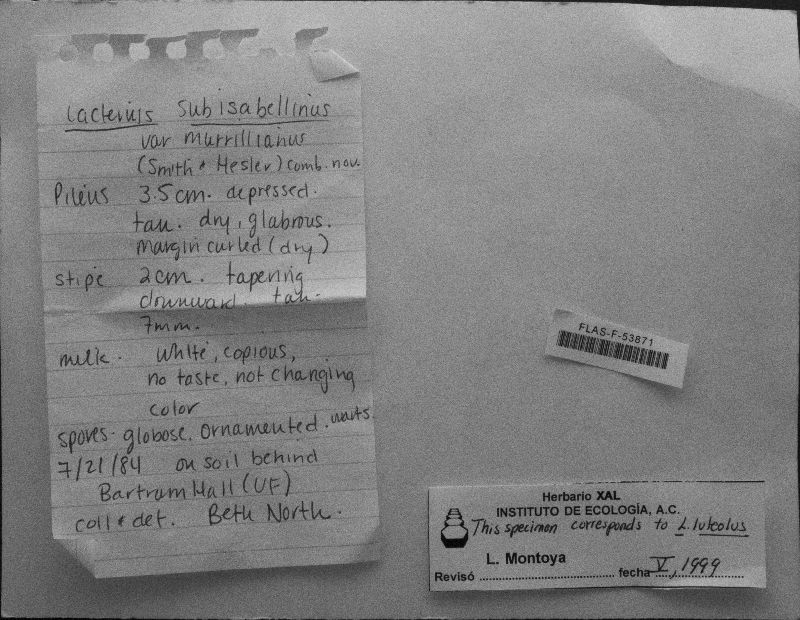 Lacterius Subisabellinus
var murrillianus
(Smith & Hesler) comb. nov.
Pileus 3.5 cm. depressed.
tan. dry, glabrous.
margin curled (dry)
stipe 2 cm. tapering
downward. tan.
7mm.
milk. white, copious,
no taste, not changing
color
spores- globose. Ornamented. warts.
7/21/84 on soil behind
Bartram Hall (UF)
coll & det. Beth North.
FLAS-F-53871
Herbario XAL
INSTITUTO DE ECOLOGÍA, A.C.
This specimen corresponds to L. luteolus
L. Montoya
Revisó fecha V, 1999